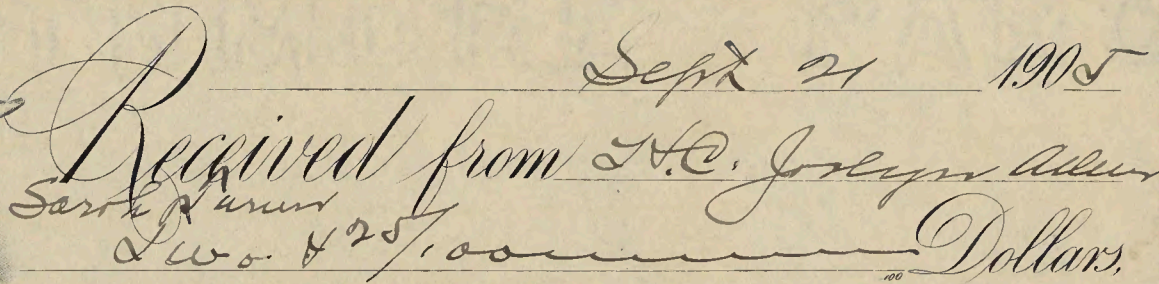 Sept 21 1905
Received from H.C. Joslyn Admr
Sarah
Two & 25/100 Dollars,
100